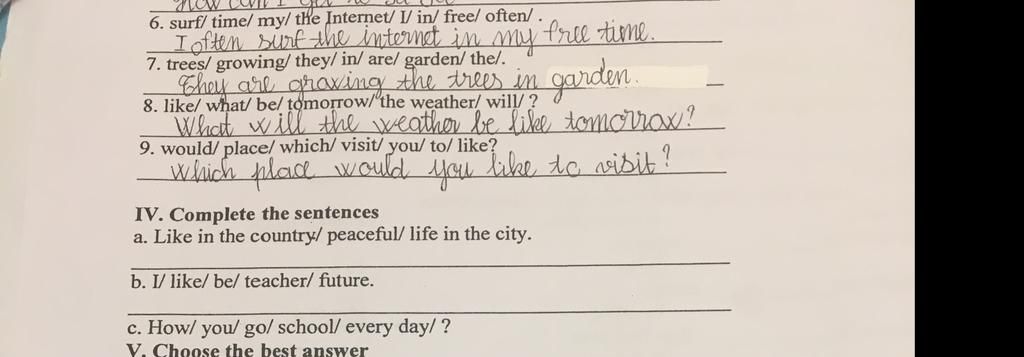 6. surf/ time/ my/ the Internet/ I/ in/ free/ often/ .
I often surf the internet in my free time.
7. trees/ growing/ they/ in/ are/ garden/ the/.
They are graxing the trees in garden.
8. like/ what/ be/ tomorrow/ the weather/ will/ ?
What will the weather be like tomorrow?
9. would/ place/ which/ visit/ you/ to/ like?
Which place would you like to visit?
IV. Complete the sentences
a. Like in the country/ peaceful/ life in the city.
b. I/ like/ be/ teacher/ future.
c. How/ you/ go/ school/ every day/ ?
V. Choose the best answer